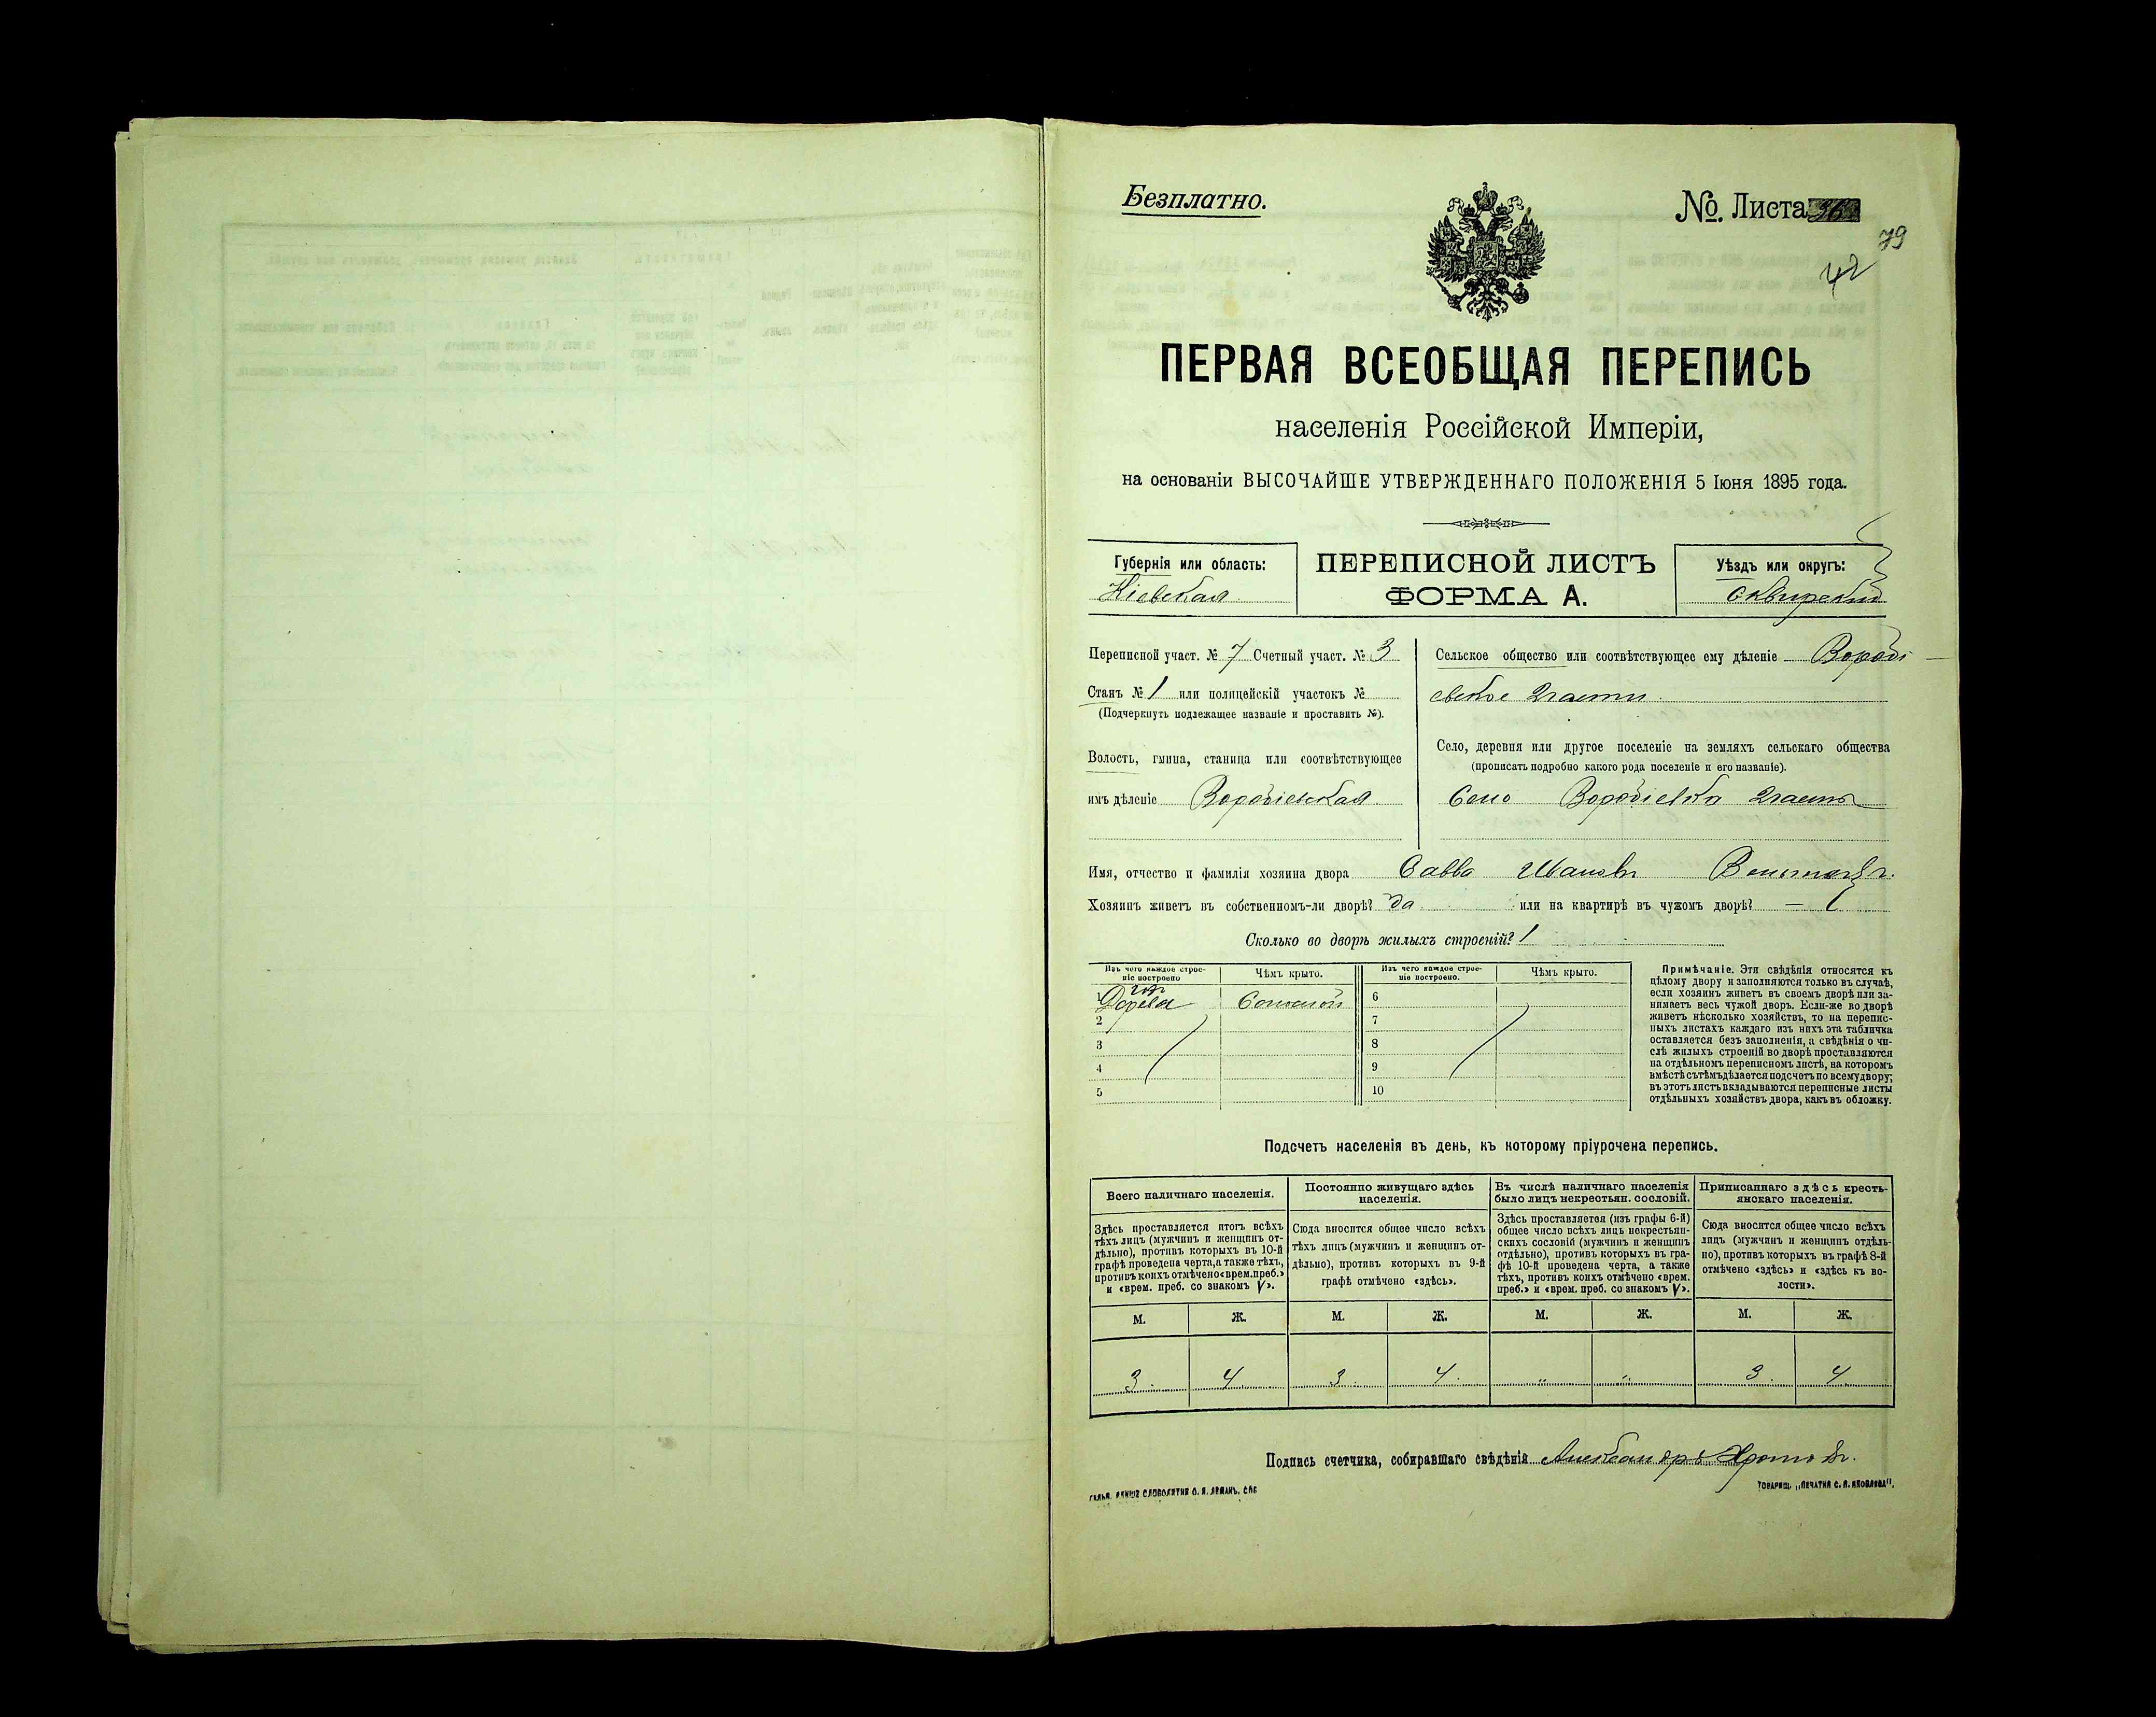 Безплатно.
№. Листа
79
42
ПЕРВАЯ ВСЕОБЩАЯ ПЕРЕПИСЬ
населенія Россійской Имперіи,
на основаніи ВЫСОЧАЙШЕ УТВЕРЖДЕННАГО ПОЛОЖЕНІЯ 5 Іюня 1895 года.
Губернія или область:
Кіевская
ПЕРЕПИСНОЙ ЛИСТЪ
ФОРМА А.
Уѣздъ или округъ:
Сквирский
Переписной участ. № 7 Счетный участ. № 3
Станъ № 1 или полицейскій участокъ №
(Подчеркнуть подлежащее названіе и проставить №).
Волость, гмина, станица или соотвѣтствующее
имъ дѣленіе Воробіевская
Сельское общество или соотвѣтствующее ему дѣленіе Воробі
евское 2 части
Село, деревня или другое поселеніе на земляхъ сельскаго общества
(прописать подробно какого рода поселеніе и его названіе).
Село Воробіевка 2 часть
Имя, отчество и фамилія хозяина двора Савва Ивановъ
Хозяинъ живетъ въ собственномъ-ли дворѣ? да или на квартирѣ въ чужомъ дворѣ? —
Сколько во дворѣ жилыхъ строеній? 1
Изъ чего каждое строе-
ніе построено
Чѣмъ крыто.
Изъ чего каждое строе-
ніе построено.
Чѣмъ крыто.
1 Дерева Соломой
2
3
4
5
6
7
8
9
10
Примѣчаніе. Эти свѣдѣнія относятся къ
цѣлому двору и заполняются только въ случаѣ,
если хозяинъ живетъ въ своемъ дворѣ или за-
нимаетъ весь чужой дворъ. Если-же во дворѣ
живетъ нѣсколько хозяйствъ, то на перепис-
ныхъ листахъ каждаго изъ нихъ эта табличка
оставляется безъ заполненія, а свѣдѣнія о чи-
слѣ жилыхъ строеній во дворѣ проставляются
на отдѣльномъ переписномъ листѣ, на которомъ
вмѣстѣ съ тѣмъ дѣлается подсчетъ по всему двору;
въ этотъ листъ вкладываются переписные листы
отдѣльныхъ хозяйствъ двора, какъ въ обложку.
Подсчетъ населенія въ день, къ которому пріурочена перепись.
Всего наличнаго населенія.
Здѣсь проставляется итогъ всѣхъ
тѣхъ лицъ (мужчинъ и женщинъ от-
дѣльно), противъ которыхъ въ 10-й
графѣ проведена черта, а также тѣхъ,
противъ коихъ отмѣчено «врем. преб.»
и «врем. преб. со знакомъ V».
Постоянно живущаго здѣсь
населенія.
Сюда вносится общее число всѣхъ
тѣхъ лицъ (мужчинъ и женщинъ от-
дѣльно), противъ которыхъ въ 9-й
графѣ отмѣчено «здѣсь».
Въ числѣ наличнаго населенія
было лицъ некрестьян. сословій.
Здѣсь проставляется (изъ графы 6-й)
общее число всѣхъ лицъ некрестьян-
скихъ сословій (мужчинъ и женщинъ
отдѣльно), противъ которыхъ въ гра-
фѣ 10-й проведена черта, а также
тѣхъ, противъ коихъ отмѣчено «врем.
преб.» и «врем. преб. со знакомъ V».
Приписаннаго здѣсь кресть-
янскаго населенія.
Сюда вносится общее число всѣхъ
лицъ (мужчинъ и женщинъ отдѣль-
но), противъ которыхъ въ графѣ 8-й
отмѣчено «здѣсь» и «здѣсь къ во-
лости».
М. Ж. М. Ж. М. Ж. М. Ж.
3 4 3 4 " " 3 4
Подпись счетчика, собиравшаго свѣдѣнія Александръ
ТОВАРИЩ. „ПЕЧАТНЯ С. П. ЯКОВЛЕВА".